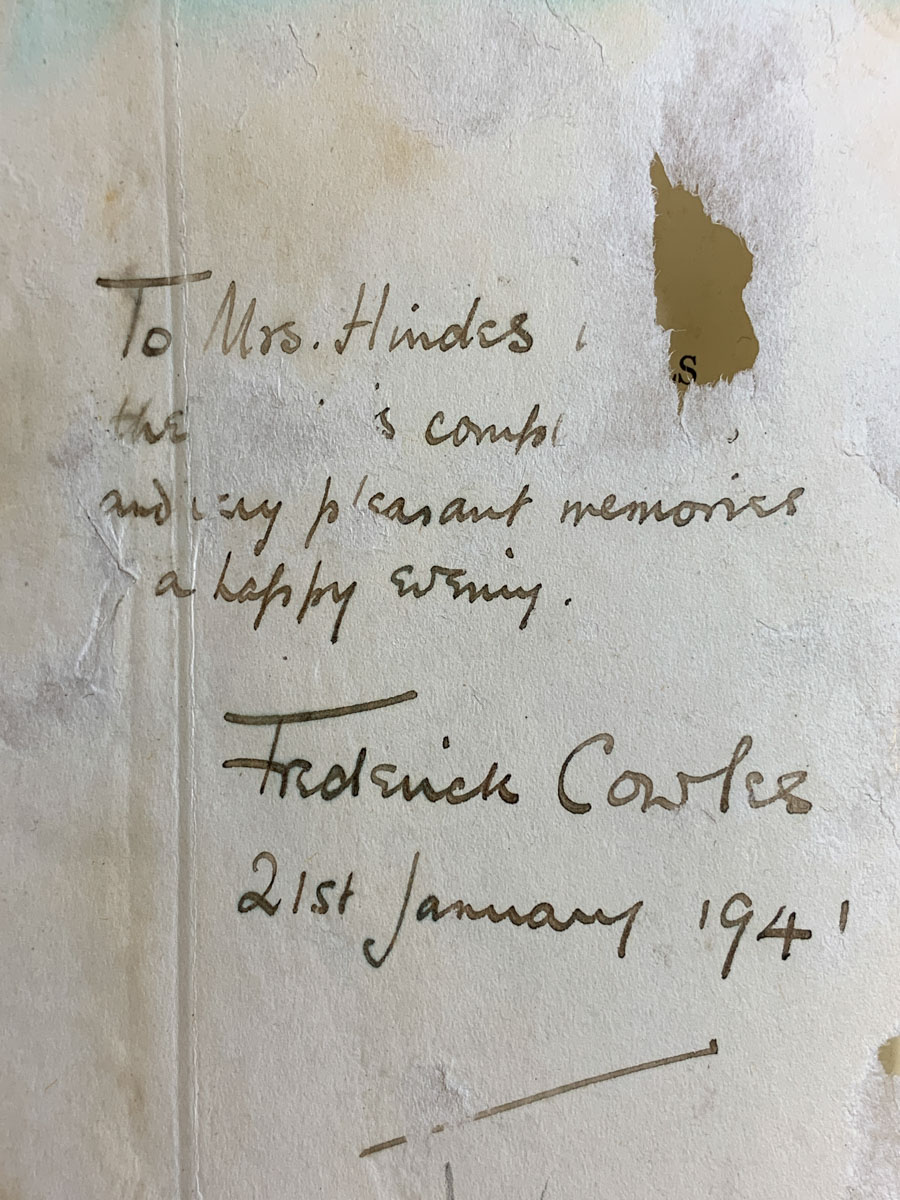 To Mrs. Hindes
S
the
and very pleasant memories
a happy evening.
Frederick Cowles
21st January 1941